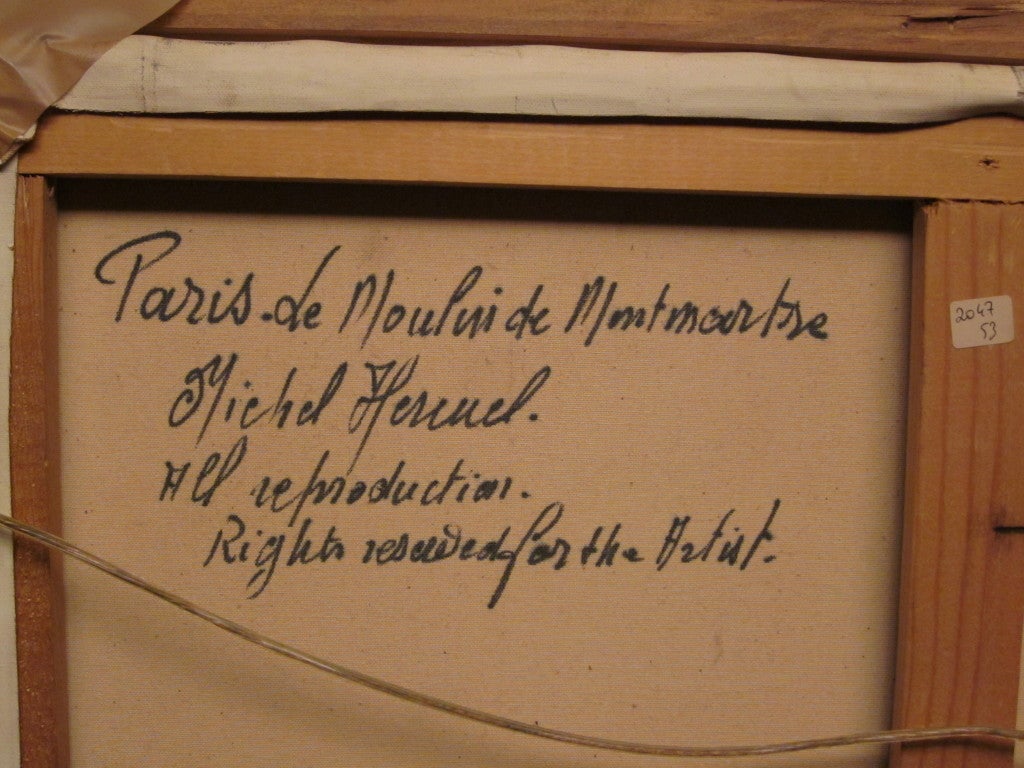 Paris - Le Moulin de Montmartre
Michel
All reproduction.
Rights reserved for the Artist.
2047
53